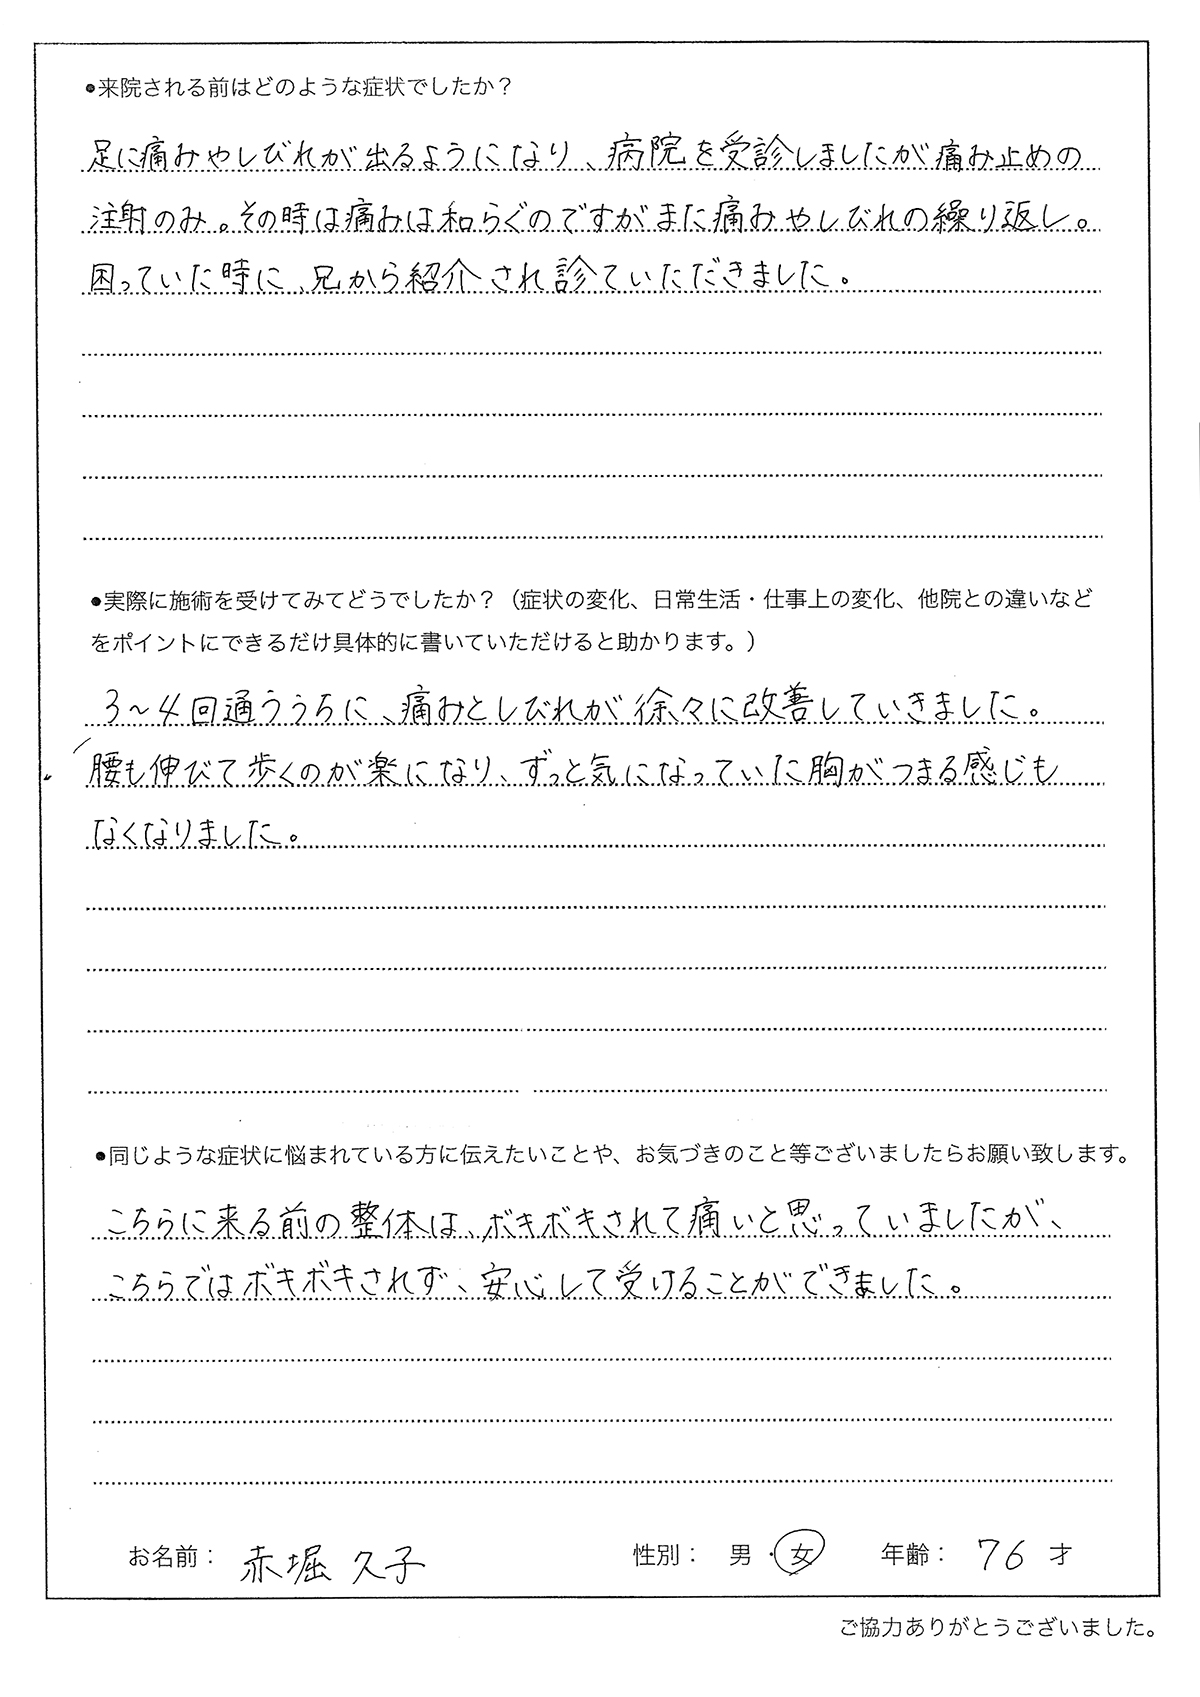 ●来院される前はどのような症状でしたか？
足に痛みやしびれが出るようになり、病院を受診しましたが痛み止めの
注射のみ。その時は痛みは和らぐのですがまた痛みやしびれの繰り返し。
困っていた時に、兄から紹介され診ていただきました。
●実際に施術を受けてみてどうでしたか？（症状の変化、日常生活・仕事上の変化、他院との違いなど
をポイントにできるだけ具体的に書いていただけると助かります。）
3〜4回通ううちに、痛みとしびれが徐々に改善していきました。
腰も伸びて歩くのが楽になり、ずっと気になっていた胸がつまる感じも
なくなりました。
●同じような症状に悩まれている方に伝えたいことや、お気づきのこと等ございましたらお願い致します。
こちらに来る前の整体は、ボキボキされて痛いと思っていましたが、
こちらではボキボキされず、安心して受けることができました。
お名前： 赤堀 久子 性別： 男・女 年齢： 76 才
ご協力ありがとうございました。